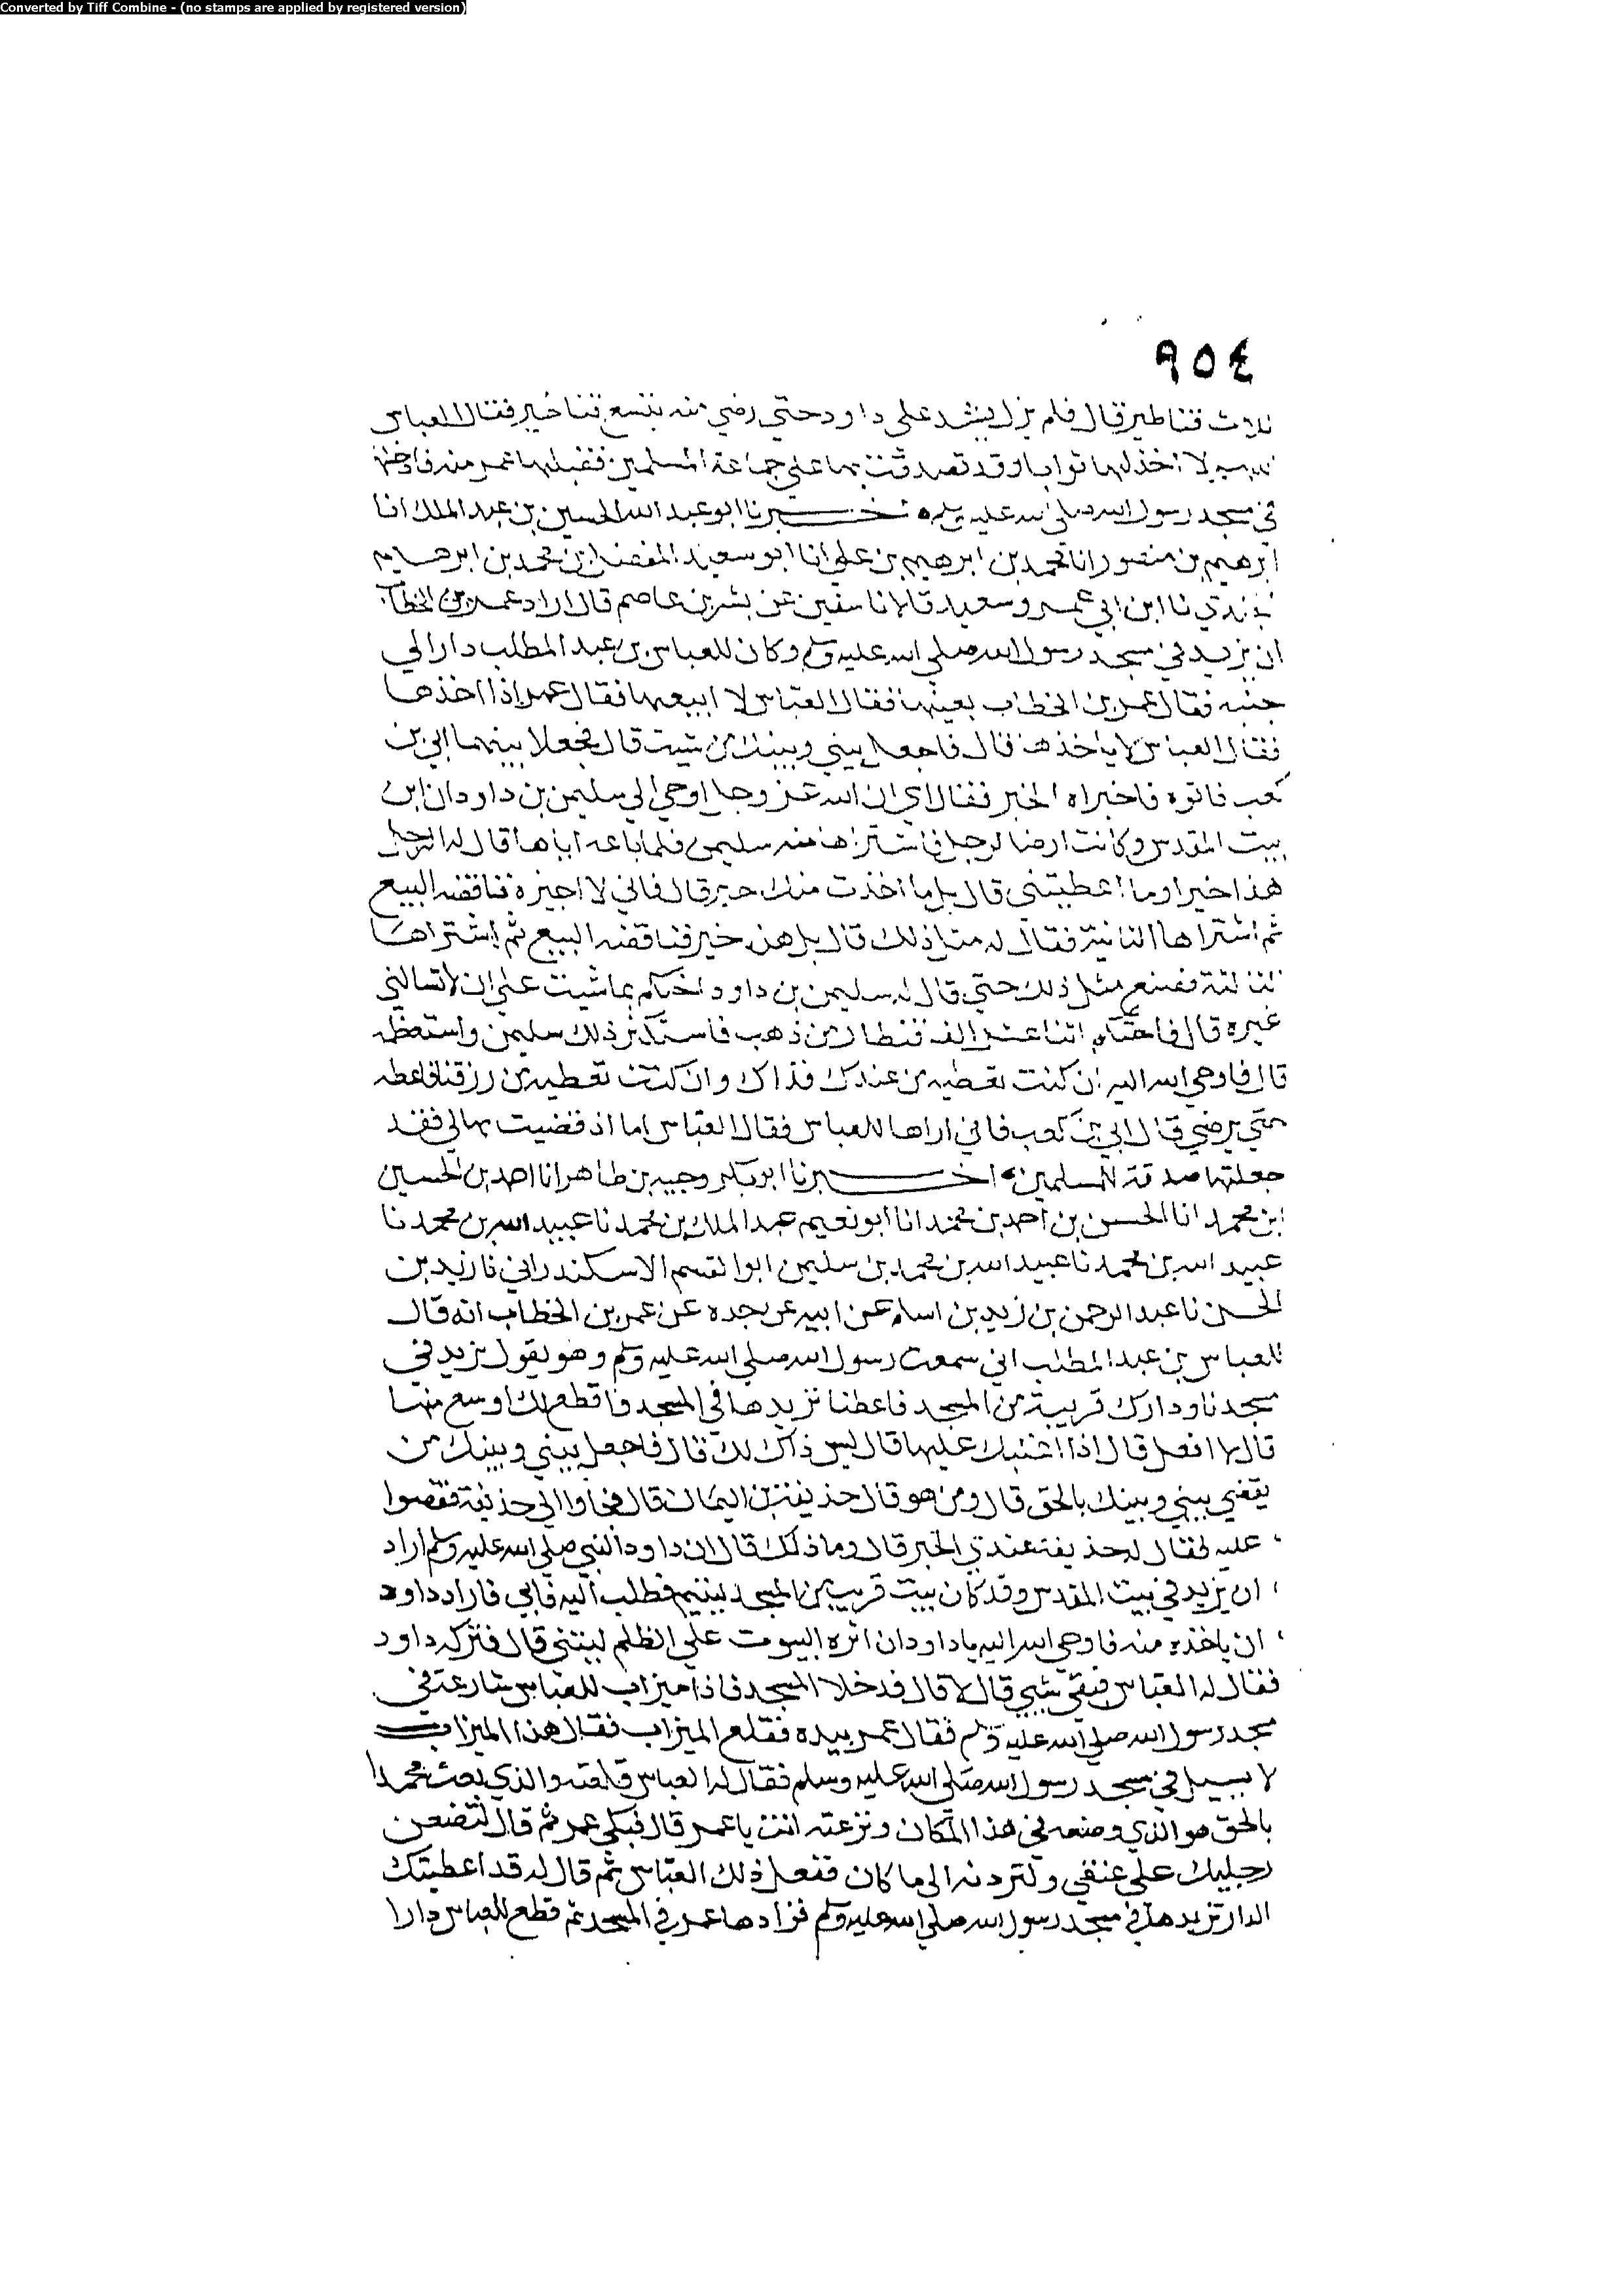 Converted by Tiff Combine - (no stamps are applied by registered version)
٩٥٤
ثلاث قناطير قال فلم يزل يشد على داود حتي رضي منه بتسع قناطير فقال العباس
لا اخذ لها ثوابا وقد تصدقت بها علي جماعة المسلمين فقبلها عمر منه فادخلها
في مسجد رسول الله صلي الله عليه وسلم ه اخــــبرنا ابو عبد الله الحسين بن عبد الملك انا
ابرهيم بن منصور انا محمد بن ابرهيم بن علي انا ابو سعيد المفضل بن محمد بن ابرهيم
الجندي نا ابن ابي عمر وسعيد قالا نا سفين عن بشر بن عاصم قال اراد عمر بن الخطاب
ان يزيد في مسجد رسول الله صلي الله عليه وسلم وكان للعباس بن عبد المطلب دار الي
جنبه فقال عمر بن الخطاب بعنيها فقال العباس لا ابيعها فقال عمر اذا اخذها
فقال العباس لا ياخذها قال فاجعل بيني وبينك من شيت قال فجعلا بينهما ابي بن
كعب فاتوه فاخبراه الخبر فقال ابي ان الله عز وجل اوحي الي سليمن بن داود ان ابن
بيت المقدس وكانت ارضا لرجل فاشتراها منه سليمن فلما باعه اياها قال له الرجل
هذا خير او ما اعطيتني قال بل ما اخذت منك خير قال فاني لا اجيزه فناقضه البيع
ثم اشتراها الثانية فقال له مثل ذلك قال بل هذه خير فناقضه البيع ثم اشتراها
الثالثة فصنع مثل ذلك حتي قال له سليمن بن داود احتكم بما شيت علي ان لا تسالني
غيره قال فاحتكم اثنا عشر الف قنطار من ذهب فاستكثر ذلك سليمن واستعظمه
قال فاوحي الله اليه ان كنت تعطيه من عندك فذاك وان كنت تعطيه من رزقنا فاعطه
حتي يرضي قال ابي بن كعب فاني اراها للعباس فقال العباس اما اذ قضيت بها لي فقد
جعلتها صدقة للمسلمين ه اخـــــبرنا ابو بكر وجيه بن طاهر انا احمد بن الحسين
ابن محمد انا الحسن بن احمد بن محمد انا ابو نعيم عبد الملك بن محمد نا عبيد الله بن محمد نا
عبيد الله بن محمد نا عبيد الله بن محمد بن سليمن ابو القسم الاسكندراني نا زيد بن
الحسن نا عبد الرحمن بن زيد بن اسلم عن ابيه عن جده عن عمر بن الخطاب انه قال
للعباس بن عبد المطلب اني سمعت رسول الله صلي الله عليه وسلم وهو يقول نزيد في
مسجدنا ودارك قريبة من المسجد فاعطنا نزيدها في المسجد واقطع لك اوسع منها
قال لا افعل قال اذا اغلبك عليها قال ليس ذاك لك قال فاجعل بيني وبينك من
يقضي بيني وبينك بالحق قال ومن هو قال حذيفة بن اليمان قال فجاوا الي حذيفة فقصوا
عليه فقال له حذيفة عندي الخبر قال وما ذلك قال ان داود النبي صلي الله عليه وسلم اراد
ان يزيد في بيت المقدس وقد كان بيت قريب من المسجد ليتيم فطلب اليه فابي فاراد داود
ان ياخذه منه فاوحي الله اليه يا داود ان انزه البيوت علي الظلم لبيتي قال فتركه داود
فقال له العباس فبقي شيي قال لا قال فدخلا المسجد فاذا ميزاب للعباس شارعة في
مسجد رسول الله صلي الله عليه وسلم فقال عمر بيده فقلع الميزاب فقال هذا الميزاب
لا يسيل في مسجد رسول الله صلي الله عليه وسلم فقال له العباس قلعته والذي بعث محمدا
بالحق هو الذي وضعه في هذا المكان ونزعته انت يا عمر قال فبكي عمر ثم قال لتضعن
رجليك علي عنقي ولتردنه الي ما كان ففعل ذلك العباس ثم قال له قد اعطيتك
الدار تزيدها في مسجد رسول الله صلي الله عليه وسلم فزادها عمر في المسجد ثم قطع للعباس دارا